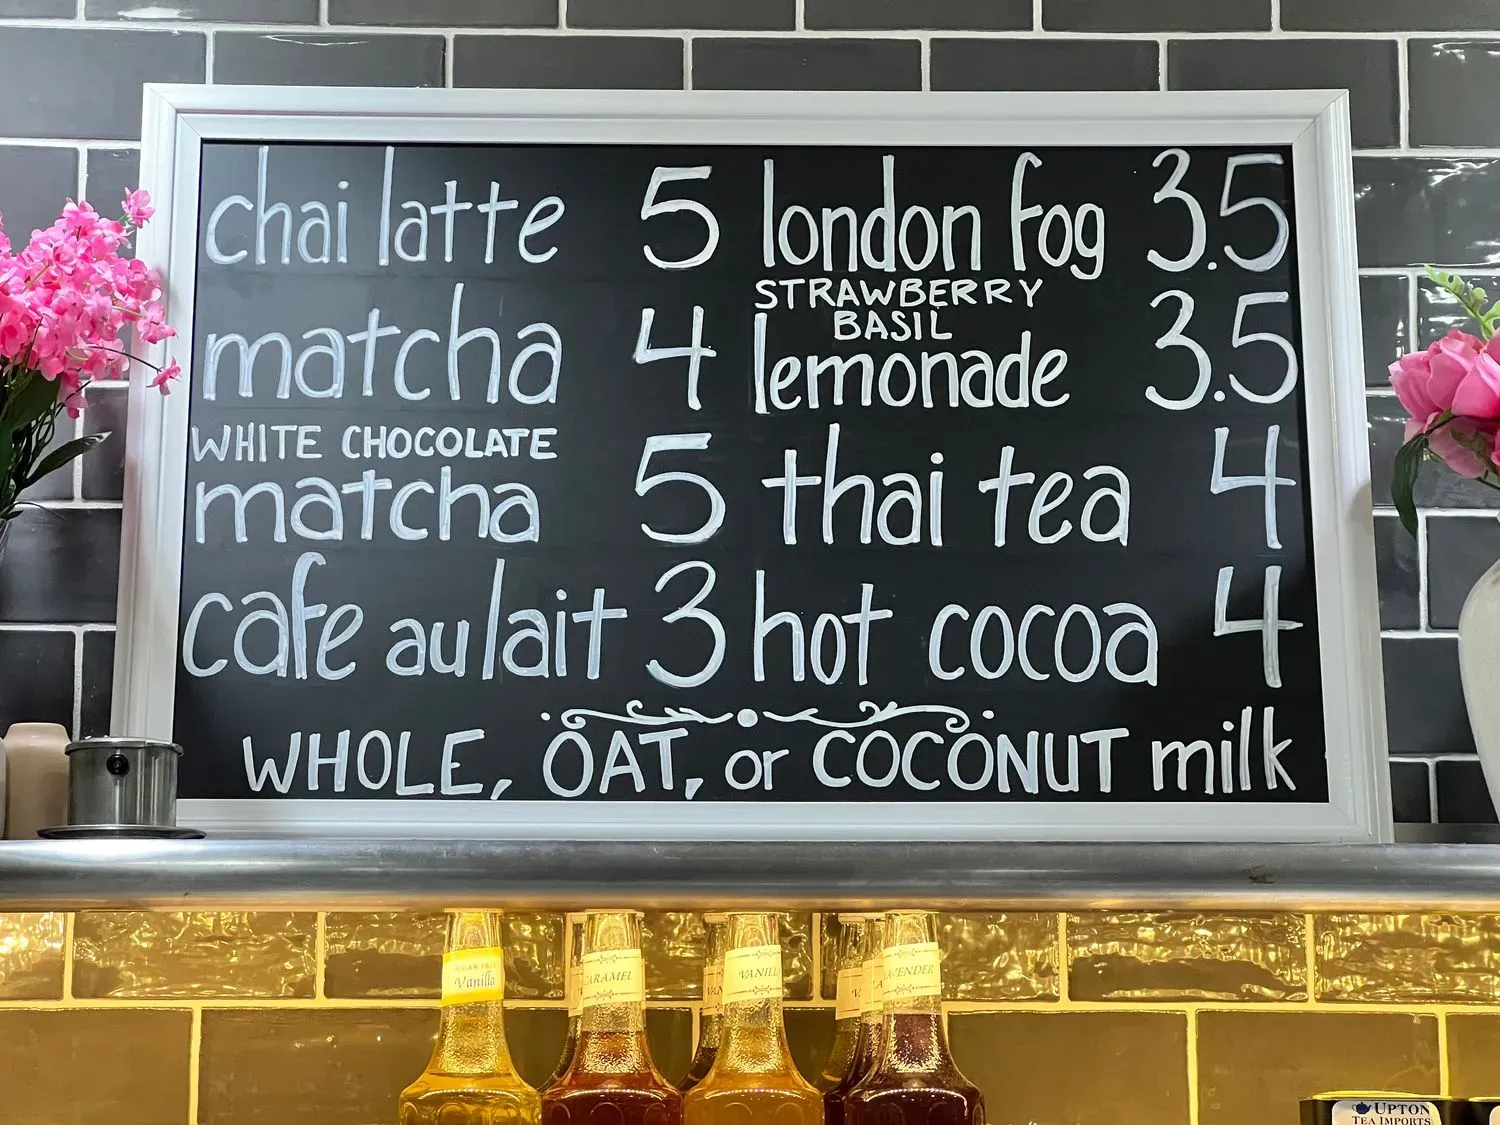 chai latte 5
matcha 4
WHITE CHOCOLATE
matcha 5
cafe au lait 3
london fog 3.5
STRAWBERRY
BASIL
lemonade 3.5
thai tea 4
hot cocoa 4
WHOLE, OAT, or COCONUT milk
SUGAR FREE
Vanilla
CARAMEL
VANILLA
LAVENDER
UPTON
TEA IMPORTS